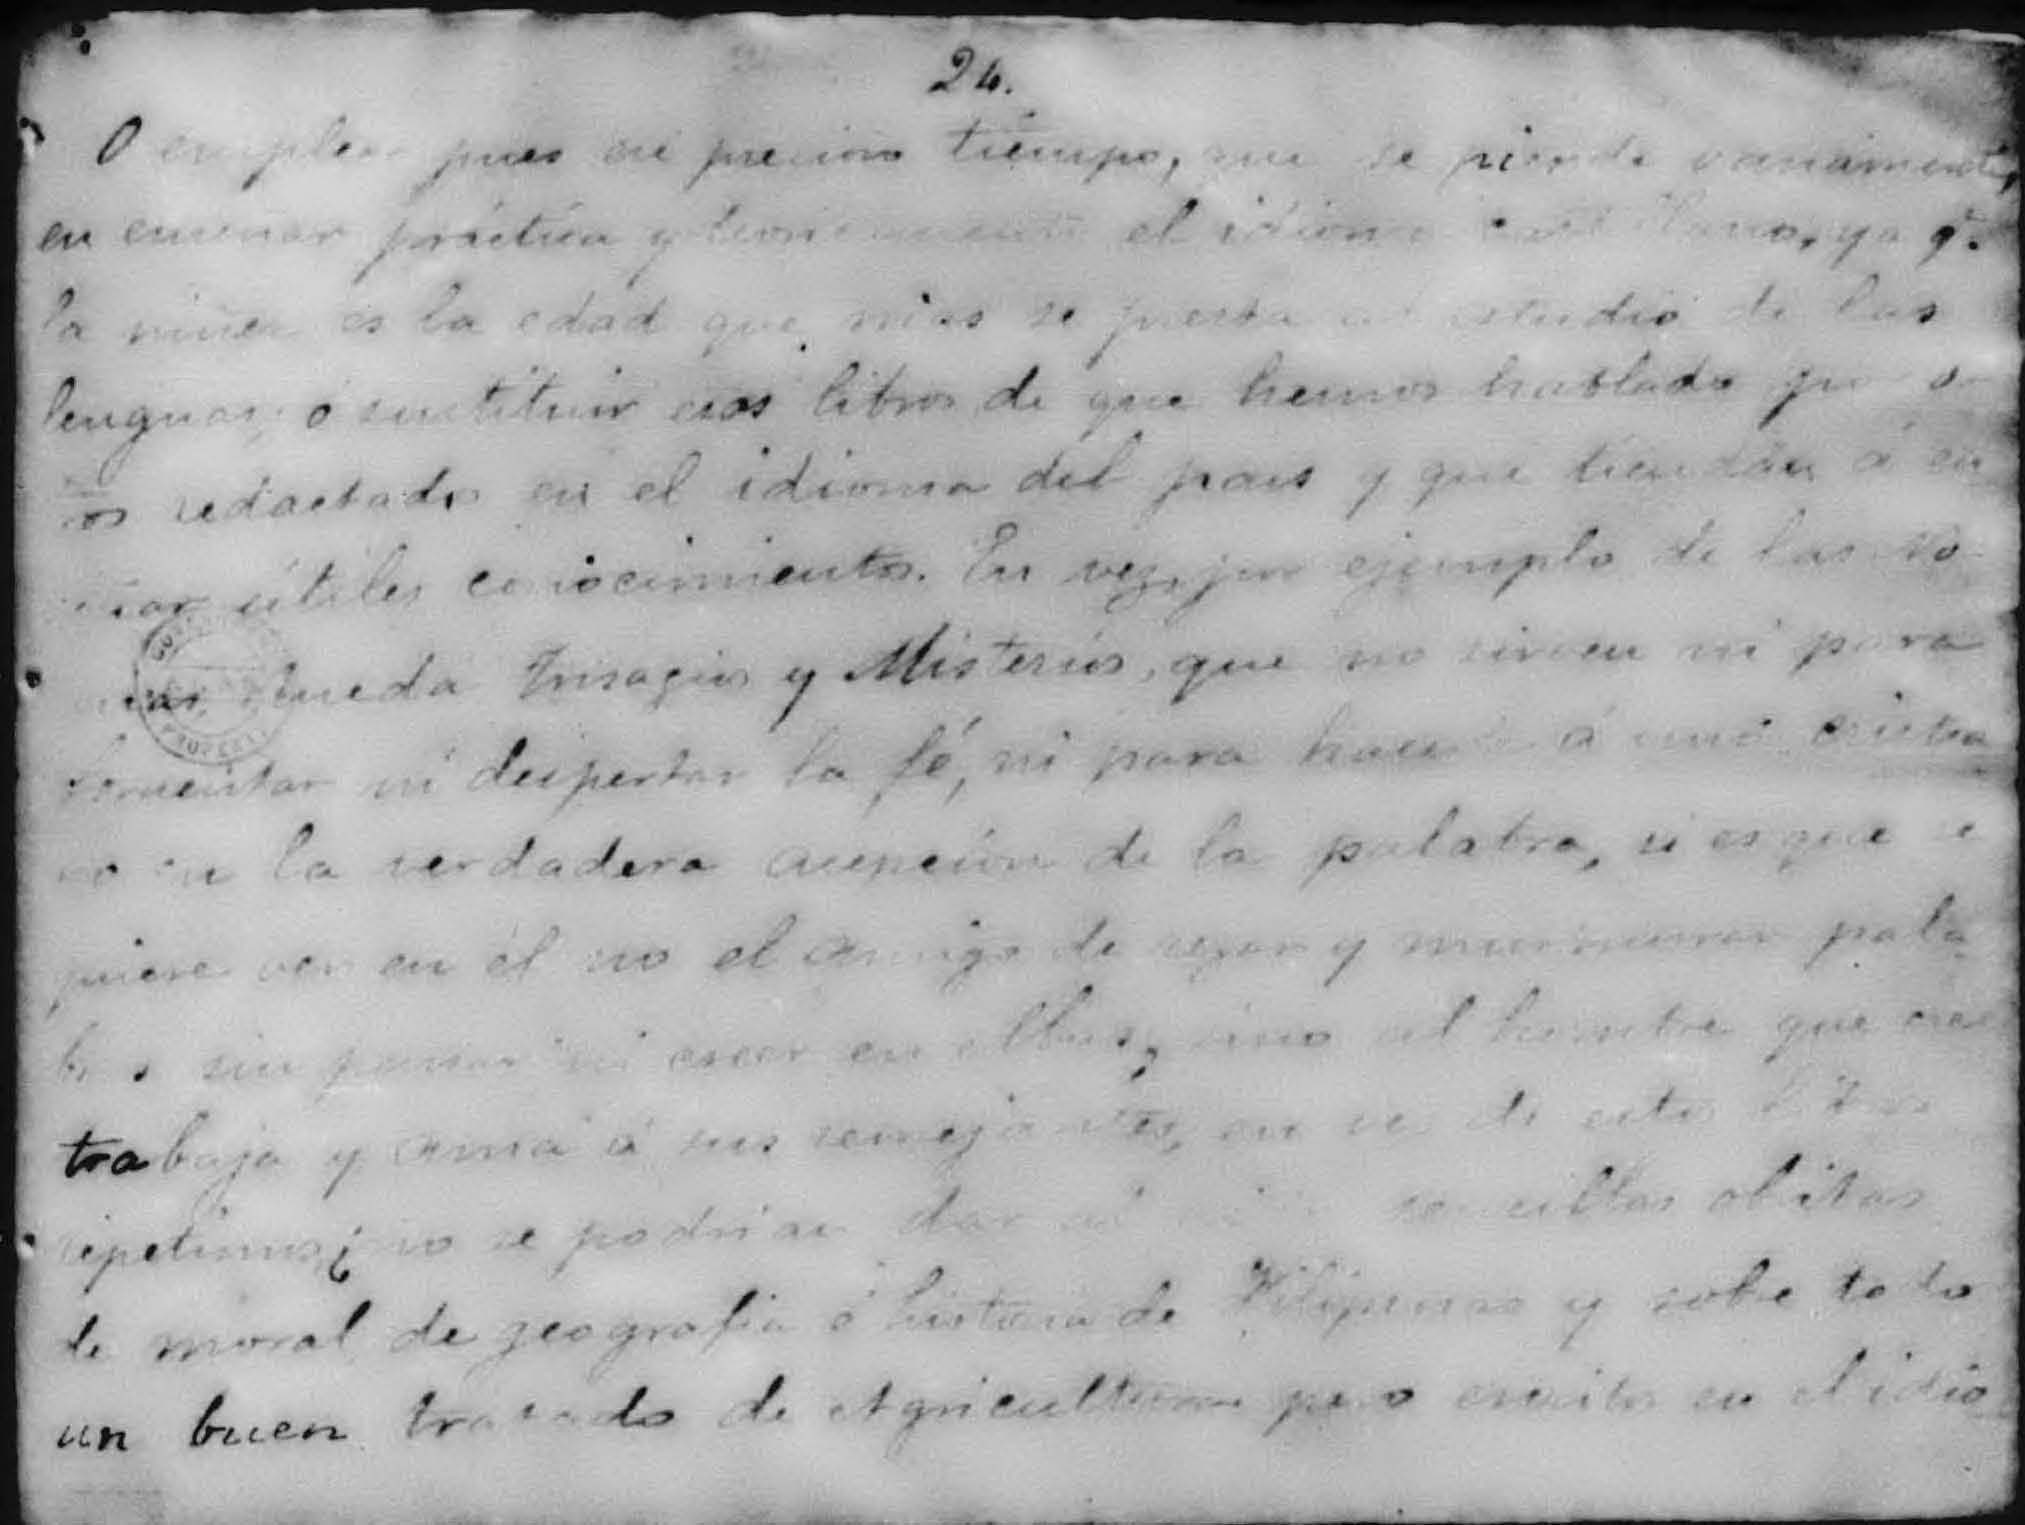 24.
O emplear pues ese precioso tiempo, que se pierde vanamente,
en enseñar práctica y teoricamente el idioma castellano, ya q.
la niñez es la edad que mas se presta al estudio de las
lenguas, ó sustituir esos libros de que hemos hablado por
redactados en el idioma del pais y que tiendan á en
útiles conocimientos. En vez, por ejemplo de las No
Trisagios y Misterios, que no sirven ni para
fomentar ni despertar la fé, ni para hacer á uno cristia
no en la verdadera acepción de la palabra, si es que se
quiere ver en él no el amigo de rezar y murmurar pala
bras sin pensar ni creer en ellas, sino al hombre que cree
trabaja y ama á sus semejantes, en vez de estos libros
repetimos ¿no se podrían dar al sencillas obitas
de moral, de geografia é historia de Filipinas y sobre todo
un buen tratado de Agricultura pero escritos en el idio